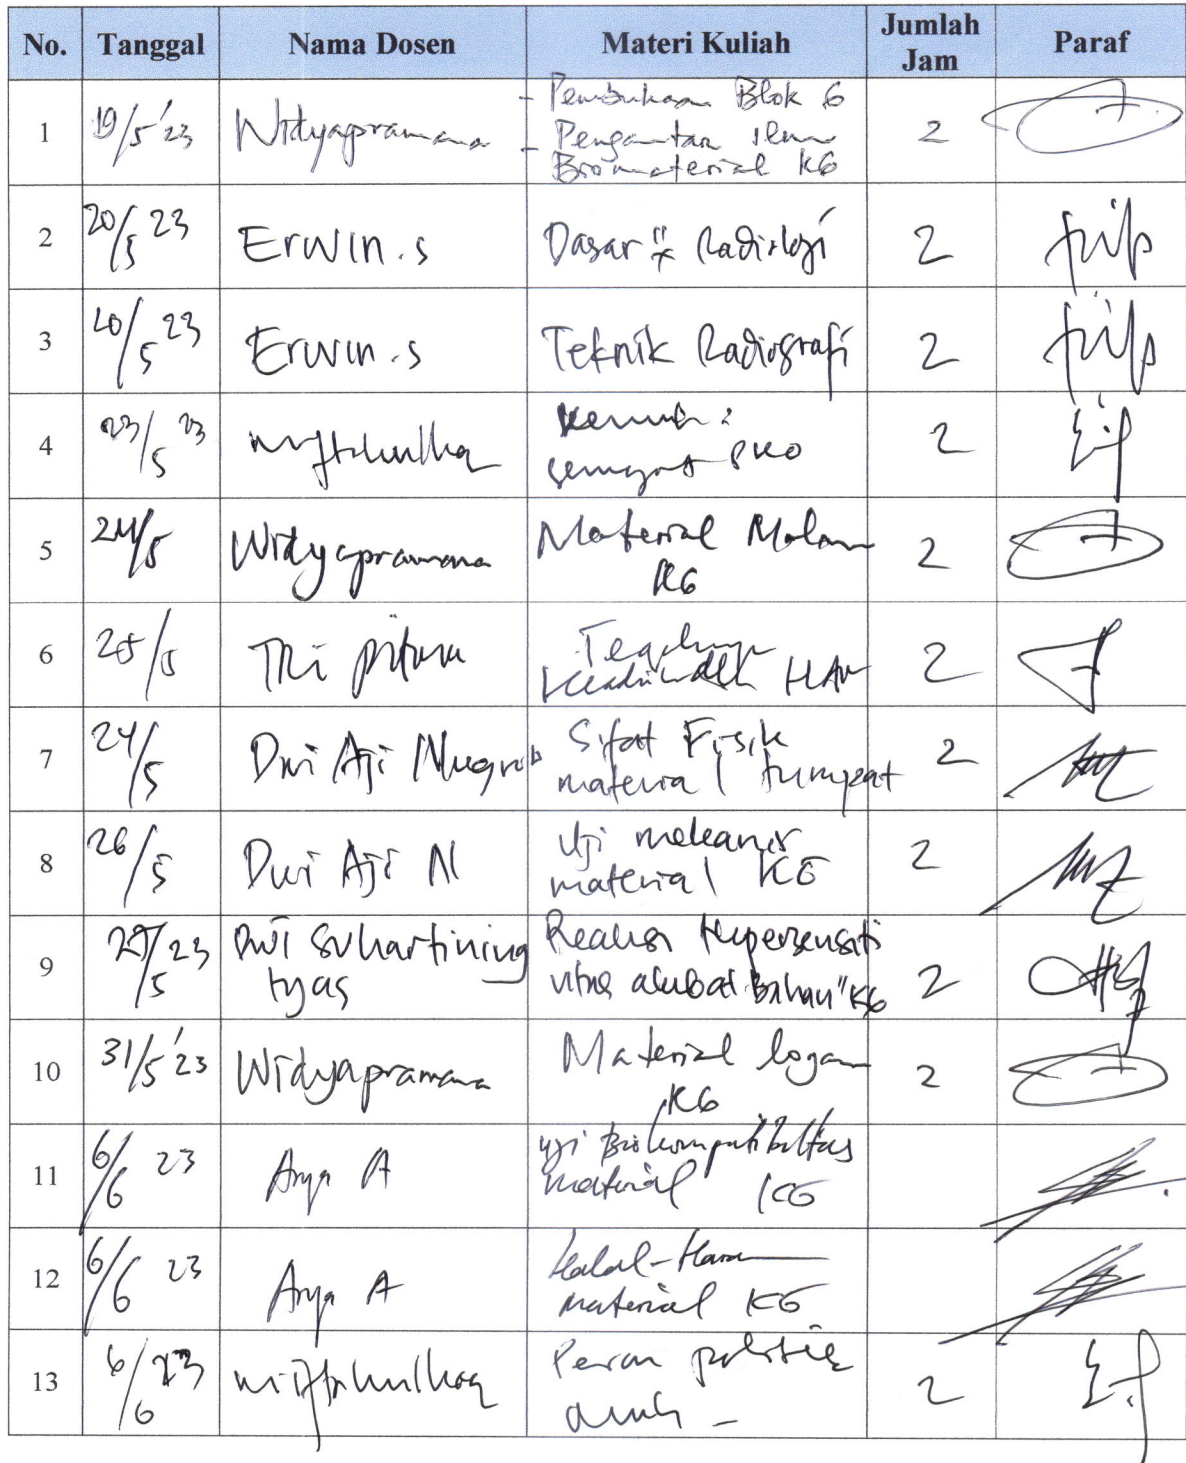 No. Tanggal Nama Dosen Materi Kuliah Jumlah Jam Paraf
1 19/5 '23 Widyapramana - Pembukaan Blok 6 2
- Pengantar Ilmu
Biomaterial KG
2 20/5 23 Erwin.s Dasar" Radiologi 2
3 20/5 23 Erwin.s Teknik Radiografi 2
4 23/5 23 miftahulhaq 2
5 24/5 Widyapramana Material Malam 2
KG
6 25/5 Tri 2
7 24/5 Dwi Aji Nugroho Sifat Fisik 2
material
8 26/5 Dwi Aji N Uji mekanis 2
material KG
9 29/23 5 Dwi Suhartining Reaksi Hipersensiti
tyas vitas akibat Bahan" KG 2
10 31/5 '23 Widyapramana Material logam 2
KG
11 6/6 23 Arya A uji Biokompatibilitas
material KG
12 6/6 23 Arya A Halal-Haram
material KG
13 6/6 23 miftahulhaq Peran politik 2